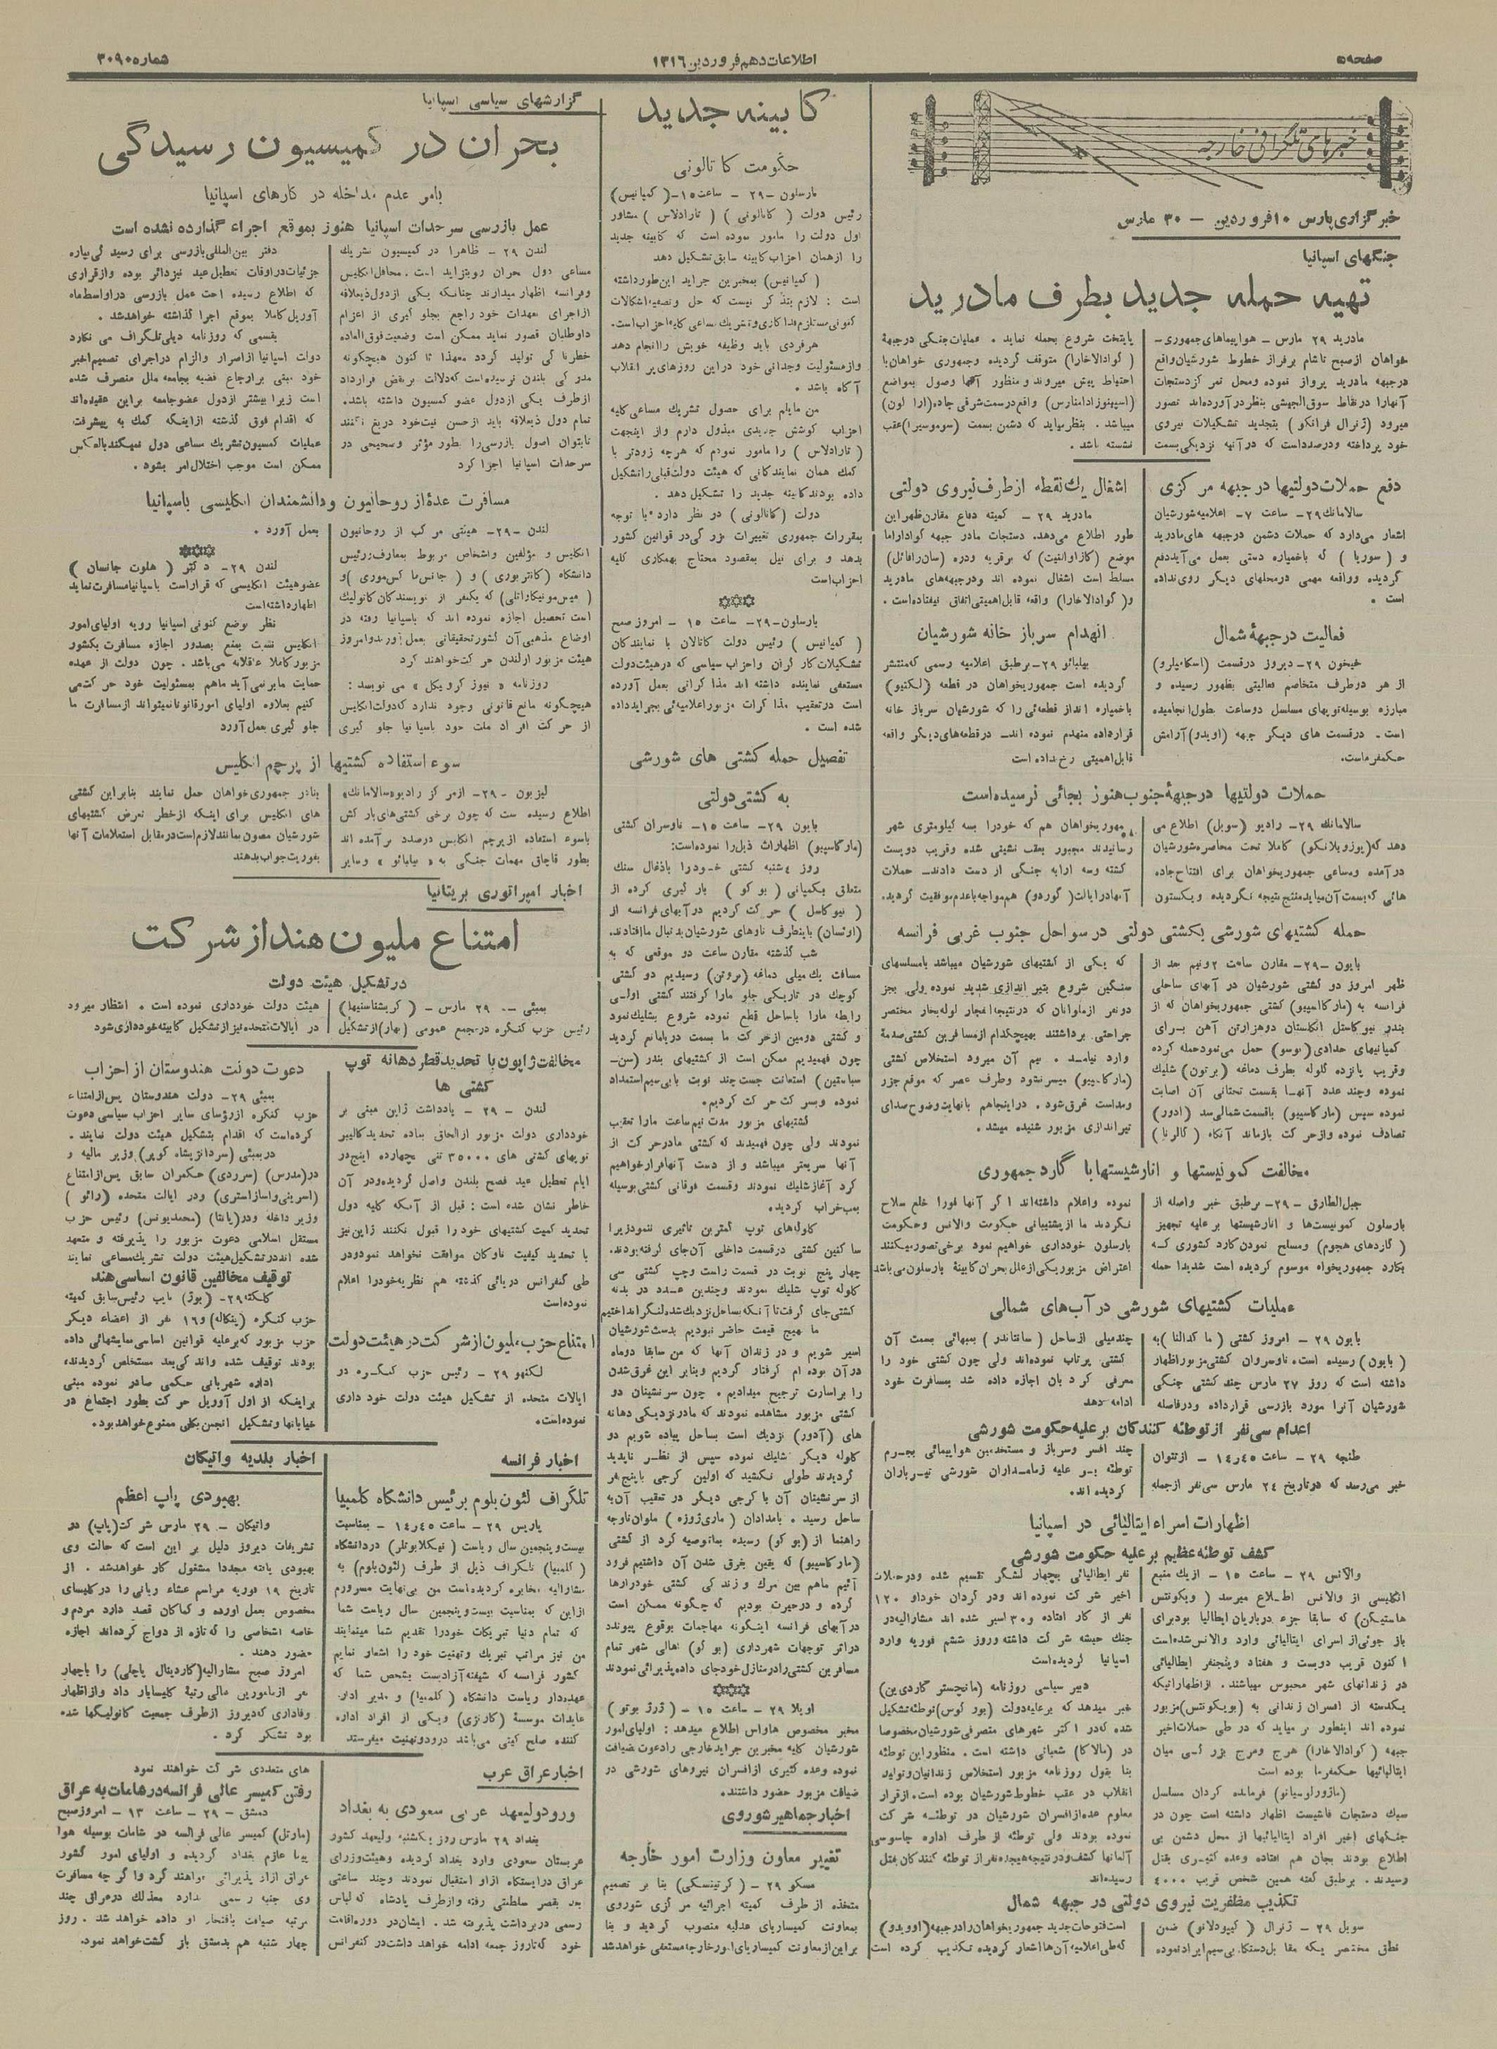 صفحه ۵
اطلاعات دهم فروردین ۱۳۱۶
شماره ۳۰۹۰
خبرهای تلگرافی خارجه
خبرگزاری پارس ۱۰ فروردین — ۳۰ مارس
جنگهای اسپانیا
تهیه حمله جدید بطرف مادرید
مادرید ۲۹ مارس – هواپیماهای جمهوری-
خواهان ازصبح تاشام برفراز خطوط شورشیان واقع
درجبهه مادرید پرواز نموده ومحل تمرکزدستجات
آنهارا درنقاط سوق‌الجیشی بنظر درآورده‌اند تصور
میرود (ژنرال فرانکو) بتجدید تشکیلات نیروی
خود پرداخته ودرصدداست که درآتیه نزدیکی بسمت
پایتخت شروع بحمله نماید . عملیات جنگی درجبهه
(گوادالاخارا) متوقف گردیده وجمهوری خواهان با
احتیاط پیش میروند و منظور آنها وصول بمواضع
میباشد . بنظر میاید که دشمن بسمت (سوموسیرا) عقب
نشسته باشد .
دفع حملات دولتیها درجبهه مرکزی
سالامانك ۲۹- ساعت ۷- اعلامیه شورشیان
اشعار میدارد که حملات دشمن درجبهه های مادرید
و (سوریا) که باخمپاره دستی بعمل می‌آید دفع
گردیده وواقعه مهمی درمحلهای دیگر روی نداده
است .
اشغال یك نقطه ازطرف نیروی دولتی
مادرید ۲۹ – کمیته دفاع مقارن ظهر این
طور اطلاع می‌دهد. دستجات مادر جبهه گوادارا‌ما
مسلط است اشغال نموده اند ودرجبهه‌های مادرید
و(گوادالاخارا) واقعه قابل اهمیتی اتفاق نیفتاده است .
فعالیت درجبهه شمال
از هر دوطرف متخاصم فعالیتی بظهور رسیده و
مبارزه بوسیله توپهای مسلسل دوساعت بطول انجامیده
است . درقسمت های دیگر جبهه (اویدو) آرامش
حکمفرماست.
انهدام سرباز خانه شورشیان
بیلبائو ۲۹-برطبق اعلامیه رسمی که منتشر
گردیده است جمهوریخواهان در قطعه (لکتیو)
باخمپاره انداز قطعه‌ئی را که شورشیان سرباز خانه
قرارداده منهدم نموده اند. درقطعه‌های دیگر واقعه
قابل اهمیتی رخ نداده است
حملات دولتیها درجبهۀ جنوب هنوز بجائی نرسیده است
سالامانك ۲۹- رادیو (سویل) اطلاع می
دهد که (پوزوبلانکو) کاملا تحت محاصره شورشیان
درآمده ومساعی جمهوریخواهان برای افتتاح جاده
هائی که بسمت آن میاید منتج نتیجه نگردیده ویکستون
جمهوریخواهان هم که خودرا بسه کیلومتری شهر
رسانیدند مجبور بعقب نشینی شده وقریب دویست
کشته وسه ارابه جنگی از دست دادند. حملات
آنهادرایالت (گوردو) هم مواجه باعدم موفقیت گردید.
حمله کشتیهای شورشی بکشتی دولتی در سواحل جنوب غربی فرانسه
بایون –۲۹- مقارن ساعت ۲ونیم بعد از
ظهر امروز دو کشتی شورشیان در آبهای ساحلی
فرانسه به (مارکاسیبو) کشتی جمهوریخواهان که از
بندر نیوکاستل انگلستان دوهزارتن آهن برای
کمپانیهای حدادی (بوسو) حمل می‌نمود حمله کرده
وقریب پانزده گلوله بطرف دماغه (برتون) شلیك
نموده وچند عدد آنها بقسمت تحتانی آن اصابت
نموده سپس (مارکاسیبو) باقسمت شمالی سد (ادور)
تصادف نموده وازحرکت بازماند
که یکی از کشتیهای شورشیان میباشد بامسلسلهای
سنگین شروع بتیر اندازی شدید نموده ولی بجز
دونفر ازملوانان که درنتیجه انفجار لوله بخار مختصر
جراحتی برداشتند بهیچکدام ازمسافرین کشتی صدمۀ
وارد نیامد . بیم آن میرود استخلاص کشتی
(مارکاسیبو) میسر نشود وطرف عصر که موقع جزر
ومداست غرق شود . دراینجاهم بانهایت وضوح صدای
تیراندازی مزبور شنیده میشد .
مخالفت کمونیستها و انارشیستها با گارد جمهوری
جبل‌الطارق –۲۹- برطبق خبر واصله از
بارسلون کمونیست‌ها و انارشیستها برعلیه تجهیز
(گاردهای هجوم) ومسلح نمودن گارد کشوری که
بگارد جمهوریخواه موسوم گردیده است شدیدا حمله
نموده واعلام داشته‌اند اگر آنها فورا خلع سلاح
نگردند ما از پشتیبانی حکومت والانس وحکومت
بارسلون خودداری خواهیم نمود برخی تصور میکنند
اعتراض مزبوریکی ازعلل بحران کابینۀ بارسلون می‌باشد
عملیات کشتیهای شورشی در آب‌های شمالی
بایون ۲۹ – امروز کشتی (ماگدالنا) به
(بایون) رسیده است. ناوسروان کشتی مزبور اظهار
داشته است که روز ۲۷ مارس چند کشتی جنگی
شورشیان آنرا مورد بازرسی قرارداده ودرفاصله
چندمیلی ازساحل (سانتاندر) بمبهائی بسمت آن
کشتی پرتاب نموده‌اند ولی چون کشتی خود را
معرفی کرد بآن اجازه داده شد بمسافرت خود
ادامه دهد
اعدام سی نفر از توطئه کنندگان برعلیه حکومت شورشی
طنجه ۲۹ – ساعت ۱۴ر۴۵ – ازتتوان
خبر می‌رسد که درتاریخ ۲۴ مارس سی نفر ازجمله
چند افسر وسرباز و مستخدمین هواپیمائی بجرم
توطئه بر علیه زمامداران شورشی تیرباران
گردیده اند.
اظهارات اسراء ایتالیائی در اسپانیا
کشف توطئه عظیم برعلیه حکومت شورشی
والانس ۲۹ – ساعت ۱۵ – ازیك منبع
انگلیسی از والانس اطلاع میرسد (ویکونتس
هاستینگز) که سابقا جزء درباریان ایطالیا بود برای
باز جوئی از اسرای ایتالیائی وارد والانس شده است
اکنون قریب دویست و هفتاد وپنج نفر ایطالیائی
در زندانهای شهر محبوس میباشند. از اظهاراتیکه
یکدسته از افسران زندانی به (ویکونتس) مزبور
نموده اند اینطور بر میاید که در طی حملات اخیر
جبهه (گوادالاخارا) هرج ومرج بزرگی میان
ایتالیائیها حکمفرما بوده است
(ماژورلوسیانو) فرمانده گردان مسلسل
سبك دستجات فاشیست اظهار داشته است چون در
جنگهای اخیر افراد ایتالیائیها از محل دشمن بی
اطلاع بودند بجان هم افتاده وعده کثیری بقتل
رسیدند. برطبق گفته همین شخص قریب ۴۰۰۰
نفر ایطالیائی بچهار لشگر تقسیم شده ودرحملات
اخیر شرکت نموده اند ودر گردان خوداو ۱۲۰
نفر از کار افتاده و۳۰ اسیر شده اند مشارالیه در
جنگ حبشه شرکت داشته وروز ششم فوریه وارد
اسپانیا گردیده است
دبیر سیاسی روزنامه (مانچستر گاردین)
خبر میدهد که برعلیه دولت (بورگوس) توطئه تشکیل
شده که در اکثر شهرهای متصرفی شورشیان مخصوصا
در (مالاگا) شعباتی داشته است . منظور این توطئه
بنا بقول روزنامه مزبور استخلاص زندانیان وتولید
انقلاب در عقب خطوط شورشیان بوده است. از قرار
معلوم عده ازافسران شورشیان در توطئه شرکت
نموده بودند ولی توطئه از طرف اداره جاسوسی
آلمانها کشف ودرنتیجه هیجده نفر از توطئه کنندگان بقتل
رسیده‌اند
تکذیب مظفریت نیروی دولتی در جبهه شمال
سویل ۲۹ – ژنرال (کیپودلانو) ضمن
نطق مختصر
است فتوحات جدید جمهوریخواهان رادر جبهه (اوویدو)
که طی اعلامیه آن‌ها اشعار گردیده تکذیب کرده است
کابینه جدید
حکومت کاتالونی
بارسلون –۲۹ – ساعت ۱۵-(کمپانیس)
رئیس دولت (کاتالونی) (تارادلاس) مشاور
اول دولت را مامور نموده است که کابینه جدید
را ازهمان احزاب کابینه سابق تشکیل دهد
(کمپانیس) بمخبرین جراید این طور داشته
است : لازم بتذکر نیست که حل وتصفیه اشکالات
کنونی مستلزم فداکاری وتشریك مساعی کلیه احزاب است.
هرفردی باید وظیفه خویش را انجام دهد
وازمسئولیت وجدانی خود در این روزهای پر انقلاب
آگاه باشد .
من مایلم برای حصول تشریك مساعی کلیه
احزاب کوشش جدیدی مبذول دارم واز اینجهت
(تارادلاس) را مامور نمودم که هرچه زودتر با
کمك همان نمایندگانی که هیئت دولت قبلی را تشکیل
داده بودند کابینه جدید را تشکیل دهد .
دولت (کاتالونی) در نظر دارد با توجه
بمقررات جمهوری تغییرات بزرگی در قوانین کشور
بدهد و برای نیل بمقصود محتاج بهمکاری کلیه
احزاب است
بارسلون-۲۹- ساعت ۱۵ – امروز صبح
(کمپانیس) رئیس دولت کاتالان با نمایندگان
تشکیلات کارگران واحزاب سیاسی که درهیئت دولت
مستعفی نماینده داشته اند مذاکراتی بعمل آورده
است درتعقیب مذاکرات مزبور اعلامیه‌ئی بجراید داده
شده است .
تفصیل حمله کشتی های شورشی
به کشتی دولتی
بایون ۲۹- ساعت ۱۵- ناوسران کشتی
(مارکاسیبو) اظهارات ذیل را نموده است:
شب گذشته مقارن ساعت دو موقعی که به
مسافت یك میلی دماغه (بروتن) رسیدیم دو کشتی
کوچك در تاریکی جلو مارا گرفتند کشتی اولی
رابطه مارا باساحل قطع نموده شروع بشلیك نمود
و کشتی دومین از حرکت ما بسمت دریا مانع گردید
چون فهمیدیم ممکن است از کشتیهای بندر (سن-
سباستین) استعانت جست چند نوبت با بی‌سیم استمداد
نموده وبسرعت حرکت کردیم.
کشتیهای مزبور مدت نیم‌ساعت مارا تعقیب
نمودند ولی چون فهمیدند که کشتی مادر حرکت از
آنها سریعتر میباشد و از دست آنها فرار خواهیم
کرد آغاز شلیك نمودند وقسمت فوقانی کشتی بوسیله
بمب خراب گردید.
گلوله‌های توپ کمترین تاثیری ننمود زیرا
ساکنین کشتی درقسمت داخلی آن جای گرفته بودند.
چهار پنج نوبت در قسمت راست وچپ کشتی سی
گلوله توپ شلیك نمودند وچندین عدد در بدنه
کشتی جای گرفت تا آنکه بساحل نزدیك شده لنگر انداختیم
ما بهیچ قیمت حاضر نبودیم بدست شورشیان
اسیر شویم و در زندان آنها که من سابقا دوماه
درآن بوده ام گرفتار گردیم وبنابر این غرق شدن
را براسارت ترجیح میدادیم . چون سرنشینان دو
کشتی مزبور مشاهده نمودند که مادر نزدیکی دهانه
های (آدور) نزدیك است بساحل پیاده شویم دو
گلوله دیگر شلیك نموده سپس از نظر ناپدید
گردیدند طولی نکشید که اولین کرجی با پنج نفر
از سرنشینان آن با کرجی دیگر در تعقیب آن به
ساحل رسید .
(مارکاسیبو) که یقین بغرق شدن آن داشتیم فرود
آئیم ماهم بین مرك و زندگی کشتی خودرا رها
کرده و درحیرت بودیم که چگونه ممکن است
درآبهای فرانسه اینگونه مهاجمات بوقوع پیوندد
دراثر توجهات شهرداری (بوکو) اهالی شهر تمام
مسافرین کشتی را در منازل خود جای داده پذیرائی نمودند
اویلا ۲۹ – ساعت ۱۵ – (ژرژ بوتو)
مخبر مخصوص هاواس اطلاع میدهد : اولیای امور
شورشیان کلیه مخبرین جراید خارجی را دعوت بضیافت
نموده وعده کثیری ازافسران نیروهای شورشی در
ضیافت مزبور حضور داشتند.
اخبار جماهیر شوروی
تغییر معاون وزارت امور خارجه
مسکو ۲۹ – (کرتینسکی) بنا بر تصمیم
متخذه از طرف کمیته اجرائیه مرکزی شوروی
بمعاونت کمیساریای عدلیه منصوب گردید و بنا
براین از معاونت کمیساریای امور خارجه مستعفی خواهد شد
گزارشهای سیاسی اسپانیا
بحران در کمیسیون رسیدگی
بامر عدم مداخله در کارهای اسپانیا
عمل بازرسی سرحدات اسپانیا هنوز بموقع اجراء گذارده نشده است
لندن ۲۹ – ظاهرا در کمیسیون تشریك
مساعی دول بحران روبتزاید است . محافل انگلیس
وفرانسه اظهار میدارند چنانکه یکی ازدول ذیعلاقه
ازاجرای تعهدات خود راجع بجلو گیری از اعزام
داوطلبان قصور نماید ممکن است وضعیت فوق‌العاده
خطرناکی تولید گردد معهذا تا کنون هیچگونه
مدرکی بلندن نرسیده است که دلالت برنقض قرارداد
ازطرف یکی ازدول عضو کمسیون داشته باشد.
تمام دول ذیعلاقه باید ازحسن نیت خود دریغ نکنند
تابتوان اصول بازرسی را بطور مؤثر وصحیحی در
سرحدات اسپانیا اجرا کرد
دفتر بین‌المللی بازرسی برای رسیدگی بپاره
جزئیات دراوقات تعطیل عید نیزدائر بوده وازقراری
که اطلاع رسیده است عمل بازرسی دراواسط ماه
آوریل کاملا بموقع اجرا گذاشته خواهد شد.
بقسمی که روزنامه دیلی تلگراف می نگارد
دولت اسپانیا ازاصرار والزام دراجرای تصمیم اخیر
خود مبنی برارجاع قضیه بجامعه ملل منصرف شده
است زیرا بیشتر ازدول عضو جامعه براین عقیده‌اند
که اقدام فوق گذشته ازاینکه کمك به پیشرفت
عملیات کمسیون تشریك مساعی دول نمیکند بالعکس
ممکن است موجب اختلال امر بشود .
مسافرت عدۀ از روحانیون و دانشمندان انگلیسی باسپانیا
لندن –۲۹- هیئتی مرکب از روحانیون
انگلیس و مؤلفین واشخاص مربوط بمعارف : رئیس
دانشگاه (کانتربوری) و
است تحصیل اجازه نموده اند که باسپانیا رفته در
اوضاع مذهبی آن کشور تحقیقاتی بعمل آورند وامروز
هیئت مزبور ازلندن حرکت خواهند کرد
روزنامه « نیوز کرونیکل » می نویسد :
هیچگونه مانع قانونی وجود ندارد که دولت انگلیس
از حرکت افراد ملت خود باسپانیا جلو گیری
بعمل آورد .
لندن ۲۹- دکتر (هلوت جانسان)
عضو هیئت انگلیسی که قراراست باسپانیا مسافرت نماید
اظهار داشته است
نظر بوضع کنونی اسپانیا رویه اولیای امور
انگلیس نسبت بمنع بصدور اجازه مسافرت بکشور
مزبور کاملا عاقلانه می‌باشد . چون دولت از عهده
حمایت ما بر نمی‌آید ماهم بمسئولیت خود حرکت می
کنیم بعلاوه اولیای امور قانونا نمیتواند از مسافرت ما
جلو گیری بعمل آورد
سوء استفاده کشتیها از پرچم انگلیس
لیزبون –۲۹- ازمرکز رادیو « سالامانك »
اطلاع رسیده است که چون برخی کشتی‌های بارکش
باسوء استفاده از پرچم انگلیس درصدد برآمده اند
بطور قاچاق مهمات جنگی به « بیلبائو » وسایر
بنادر جمهوری خواهان حمل نمایند بنابراین کشتی
های انگلیس برای اینکه ازخطر تعرض کشتیهای
شورشیان مصون بمانند لازم است درمقابل استعلامات آنها
بفوریت جواب بدهند
اخبار امپراتوری بریتانیا
امتناع ملیون هند از شرکت
در تشکیل هیئت دولت
بمبئی – ۲۹ مارس – (کریشناسنیها)
رئیس حزب کنگره درمجمع عمومی (بهار) ازتشکیل
هیئت دولت خودداری نموده است . انتظار میرود
در ایالات متحده نیز از تشکیل کابینه خودداری شود
مخالفت ژاپون با تحدید قطر دهانه توپ
کشتی ها
لندن – ۲۹ – یادداشت ژاپن مبنی بر
خودداری دولت مزبور ازالحاق بماده تحدید کالیبر
توپهای کشتی های ۳۵۰۰۰ تنی بچهارده اینچ در
ایام تعطیل عید فصح بلندن واصل گردیده ودر آن
خاطر نشان شده است : قبل از آنکه کلیه دول
تحدید کمیت کشتیهای خود را قبول نکنند ژاپن نیز
با تحدید کیفیت ناوگان موافقت نخواهد نمود ودر
طی کنفرانس دریائی گذشته هم نظریه خودرا اعلام
نموده است
امتناع حزب ملیون از شرکت در هیئت دولت
لکنهو ۲۹ – رئیس حزب کنگره در
ایالات متحده از تشکیل هیئت دولت خود داری
نموده است.
دعوت دولت هندوستان از احزاب
بمبئی ۲۹- دولت هندوستان پس‌از امتناع
حزب کنگره ازرؤسای سایر احزاب سیاسی دعوت
کرده است که اقدام بتشکیل هیئت دولت نمایند .
دربمبئی (سردانژیشاه کوپر) وزیر مالیه و
وزیر داخله ودر (پاتنا) (محمدیونس) رئیس حزب
مستقل اسلامی دعوت مزبور را پذیرفته و متعهد
شده اند در تشکیل هیئت دولت تشریك مساعی نمایند
توقیف مخالفین قانون اساسی هند
کلکته ۲۹- (بوز) نایب رئیس سابق کمیته
حزب کنگره (بنگاله) و ۱۶ نفر از اعضاء دیگر
حزب مزبور که برعلیه قوانین اساسی نمایشهائی داده
بودند توقیف شده واندکی بعد مستخلص گردیدند.
اداره شهربانی حکمی صادر نموده مبنی
براینکه از اول آوریل حرکت بطور اجتماع در
خیابانها وتشکیل انجمن بکلی ممنوع خواهد بود.
اخبار فرانسه
تلگراف لئون بلوم برئیس دانشگاه کلمبیا
پاریس ۲۹ – ساعت ۱۴ر۴۵ – بمناسبت
بیست وپنجمین سال ریاست (نیکلابوتلر) در دانشگاه
(کلمبیا) تلگراف ذیل از طرف (لئون بلوم) به
مشارالیه مخابره گردیده است من بی‌نهایت مسرورم
ازاین که بمناسبت بیست وپنجمین سال ریاست شما
که تمام دنیا تبریکات خودرا تقدیم شما مینمایند
من نیز مراتب تبریك وتهنیت خود را اشعار نمایم
کشور فرانسه که شیفته آزادیست بشخص شما که
عهده‌دار ریاست دانشگاه (کلمبیا) و مدیر اداره
عایدات موسسۀ (کارنژی) ویکی از افراد اداره
کننده صلح گیتی می‌باشد درود وتهنیت میفرستد
اخبار بلدیه واتیکان
بهبودی پاپ اعظم
واتیکان – ۲۹ مارس شرکت (پاپ) در
تشریفات دیروز دلیل بر این است که حالت وی
بهبودی یافته مجددا مشغول کار خواهد شد . از
تاریخ ۱۹ فوریه مراسم عشاء ربانی را درکلیسای
مخصوص بعمل آورده و کماکان قصد دارد مردم و
خاصه اشخاصی را که تازه از دواج کرده‌اند اجازه
حضور دهند .
امروز صبح مشارالیه (کاردینال پاچلی) را باچهار
نفر ازمامورین عالی رتبۀ کلیسا بار داد و از اظهار
وفاداری که دیروز ازطرف جمعیت کاتولیکها شده
بود تشکر کرد .
اخبار عراق عرب
ورود ولیعهد عربی سعودی به بغداد
بغداد ۲۹ مارس روز یکشنبه ولیعهد کشور
عربستان سعودی وارد بغداد گردیده وهیئت وزرای
عراق درایستگاه از او استقبال نمودند وچند ساعتی
بعد بقصر سلطنتی رفته وازطرف پادشاه که لباس
رسمی در برداشت پذیرفته شد . ایشان در دوره اقامت
خود که تاروز جمعه ادامه خواهد داشت در کنفرانس
های متعددی شرکت خواهند نمود
رفتن کمیسر عالی فرانسه در شامات به عراق
دمشق – ۲۹ – ساعت ۱۳ – امروز صبح
(مارتل) کمیسر عالی فرانسه در شامات بوسیله هوا
پیما عازم بغداد گردیده و اولیای امور کشور
عراق از او پذیرائی خواهند کرد و اگر چه مسافرت
وی جنبه رسمی ندارد معذلك درعراق چند
مرتبه ضیافت بافتخار او داده خواهد شد . روز
چهار شنبه هم بدمشق باز گشت خواهد نمود.